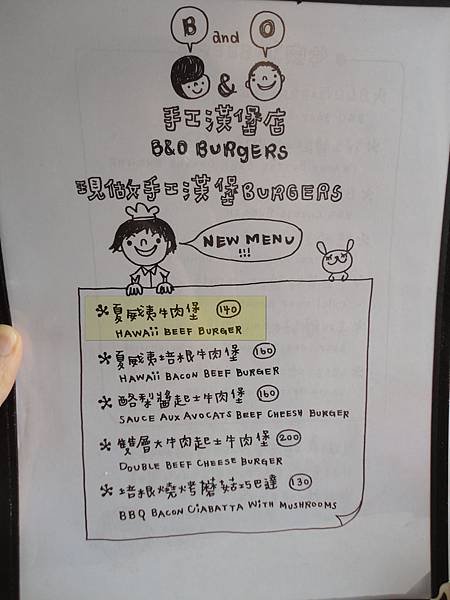 B and O
&
手工漢堡店
B&O BURGERS
現做手工漢堡BURGERS
NEW MENU
!!!
夏威夷牛肉堡 140
HAWAii BEEF BURGER
夏威夷培根牛肉堡 160
HAWAii BACON BEEF BURGER
酪梨醬起士牛肉堡 160
SAUCE AUX AVOCATS BEEF CHEESY BURGER
雙層大牛肉起士牛肉堡 200
DOUBLE BEEF CHEESE BURGER
培根燒烤蘑菇巧巴達 130
BBQ BACON CiABATTA WiTH MUSHROOMS